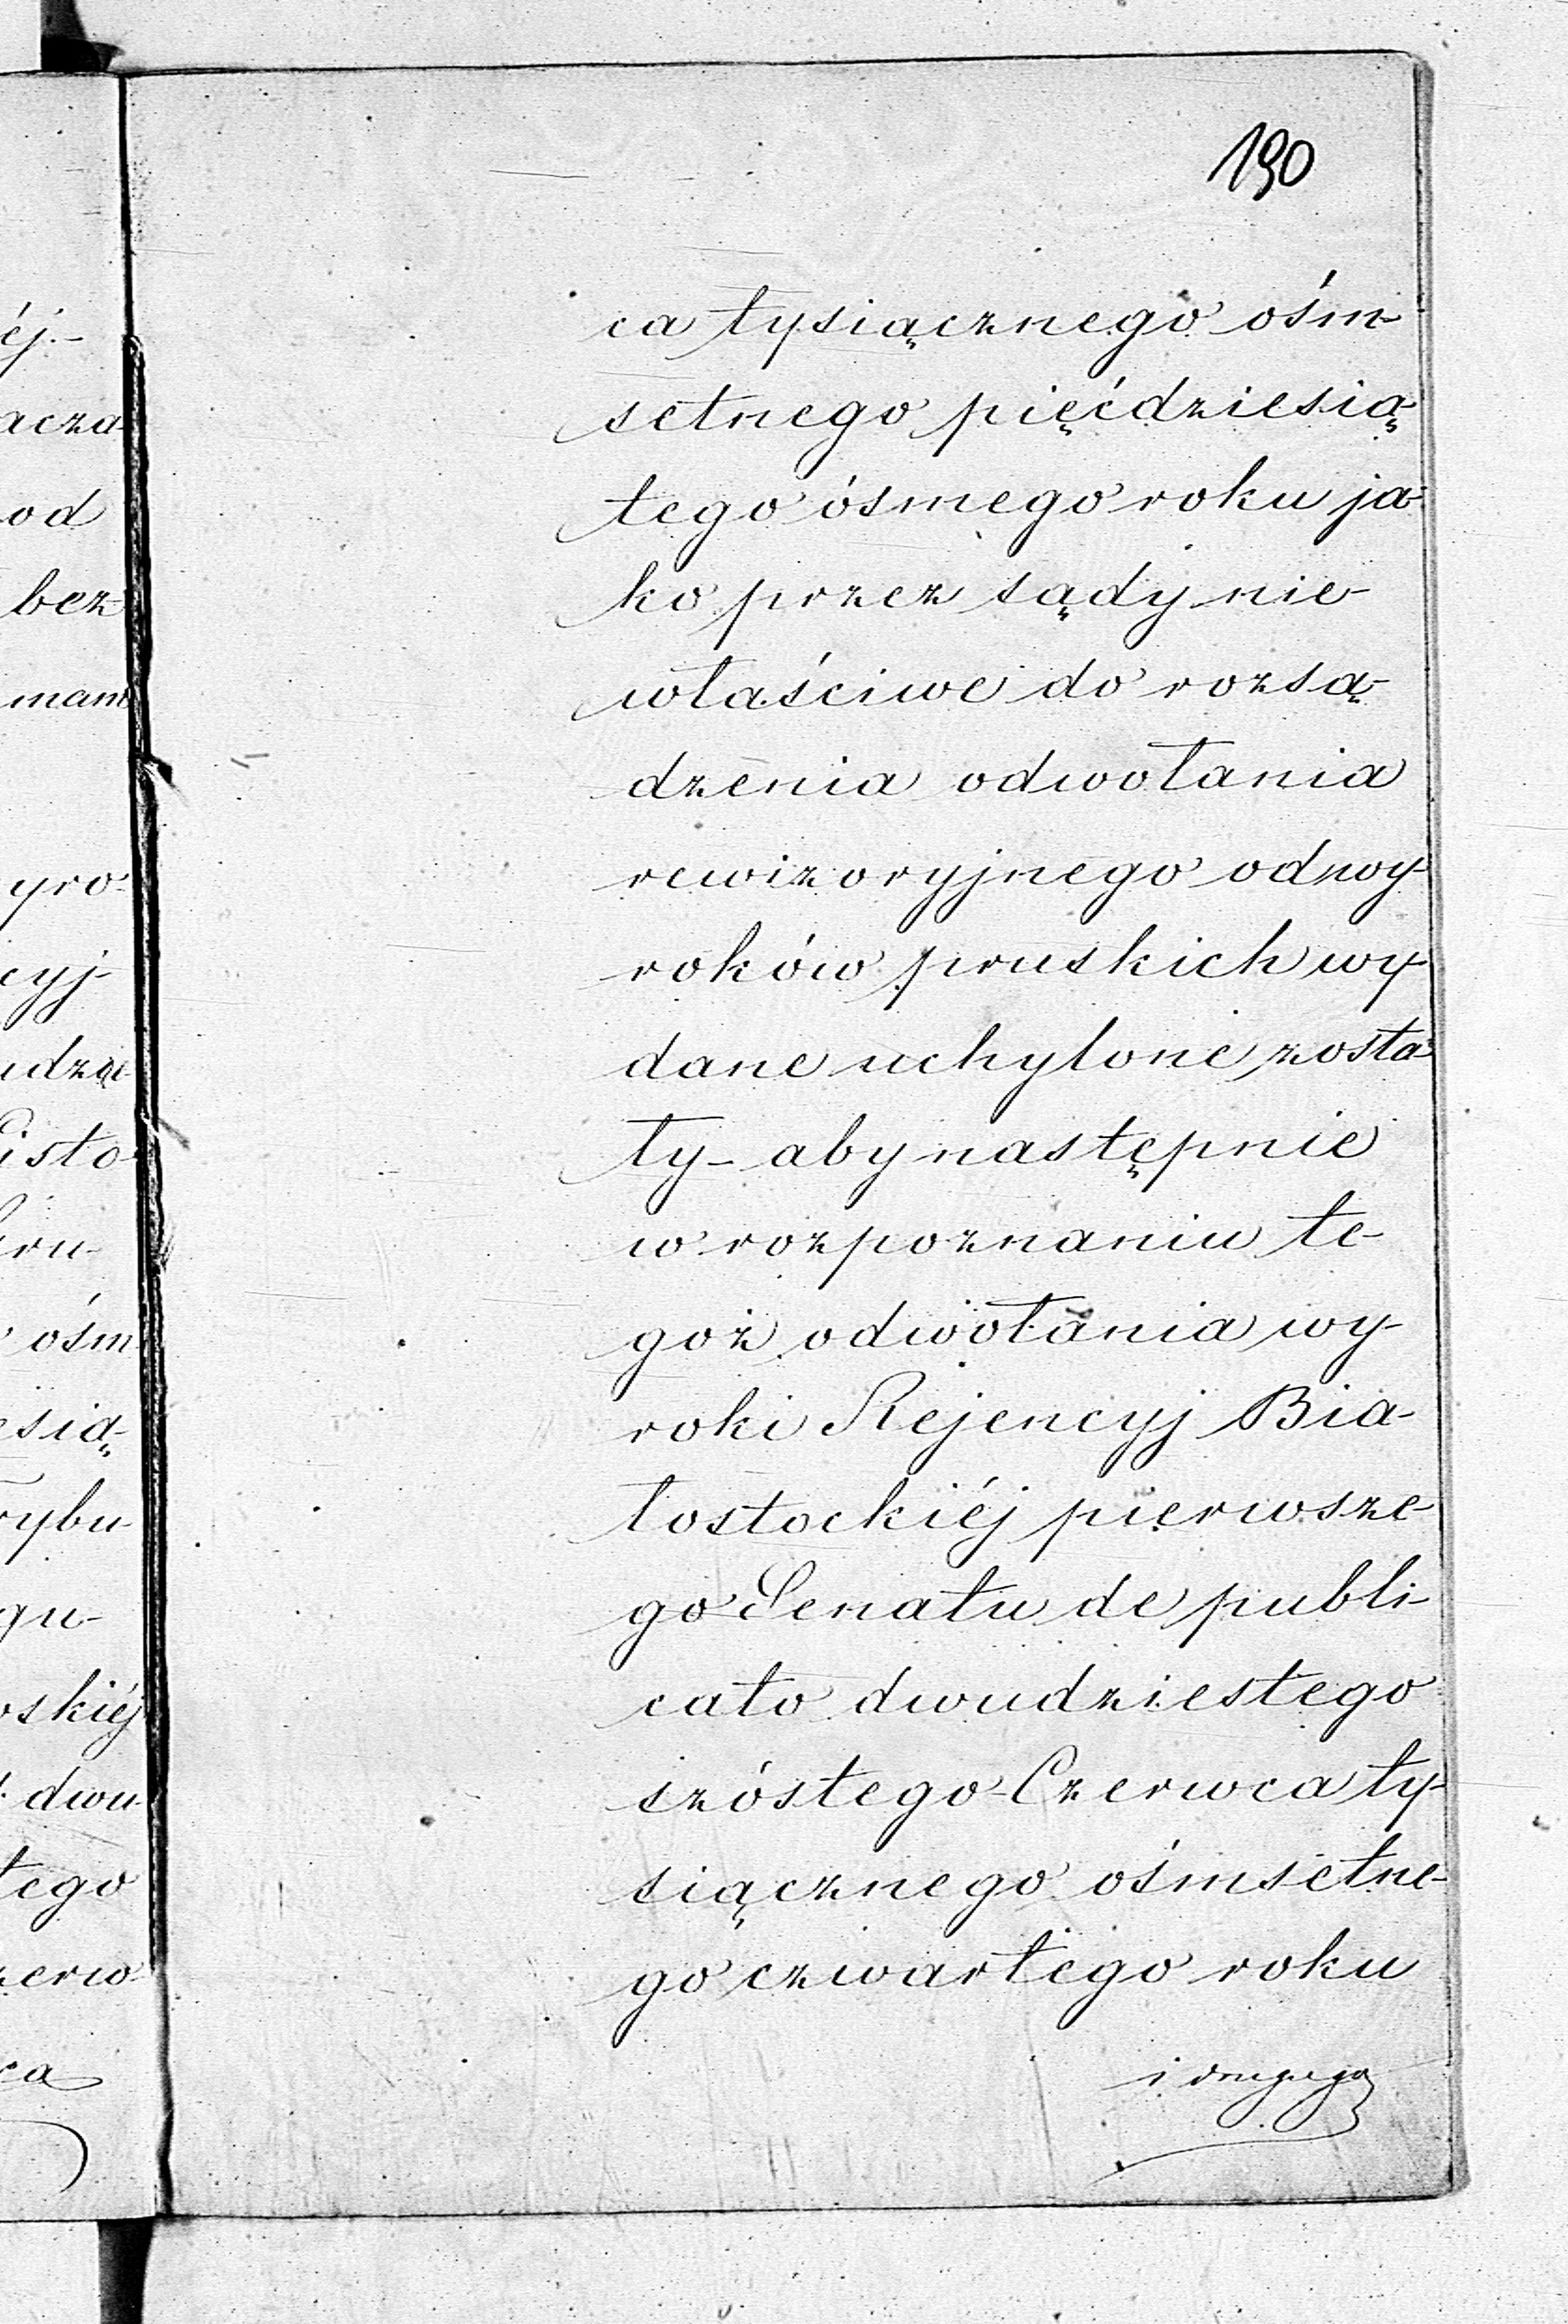 190
ca tysiącznego ośm-
setnego pięćdziesią-
tego ósmego roku ja-
ko przez sądy nie-
właściwe do rozsą-
dzenia odwołania
rewizoryjnego od wy-
roków pruskich wy-
dane uchylone zosta-
ły - aby następnie
w rozpoznaniu te-
goż odwołania wy-
roki Rejencyj Bia-
łostockiéj pierwsze-
go Senatu de publi-
cato dwudziestego
szóstego Czerwca ty-
siącznego ośmsetne-
go czwartego roku
i drugiego
éj -
acza-
od
bez
mam
yro-
cyj-
udzie
isto-
ośm
esią-
rybu-
gu-
oskiéj
dwu-
tego
zerw-
ca